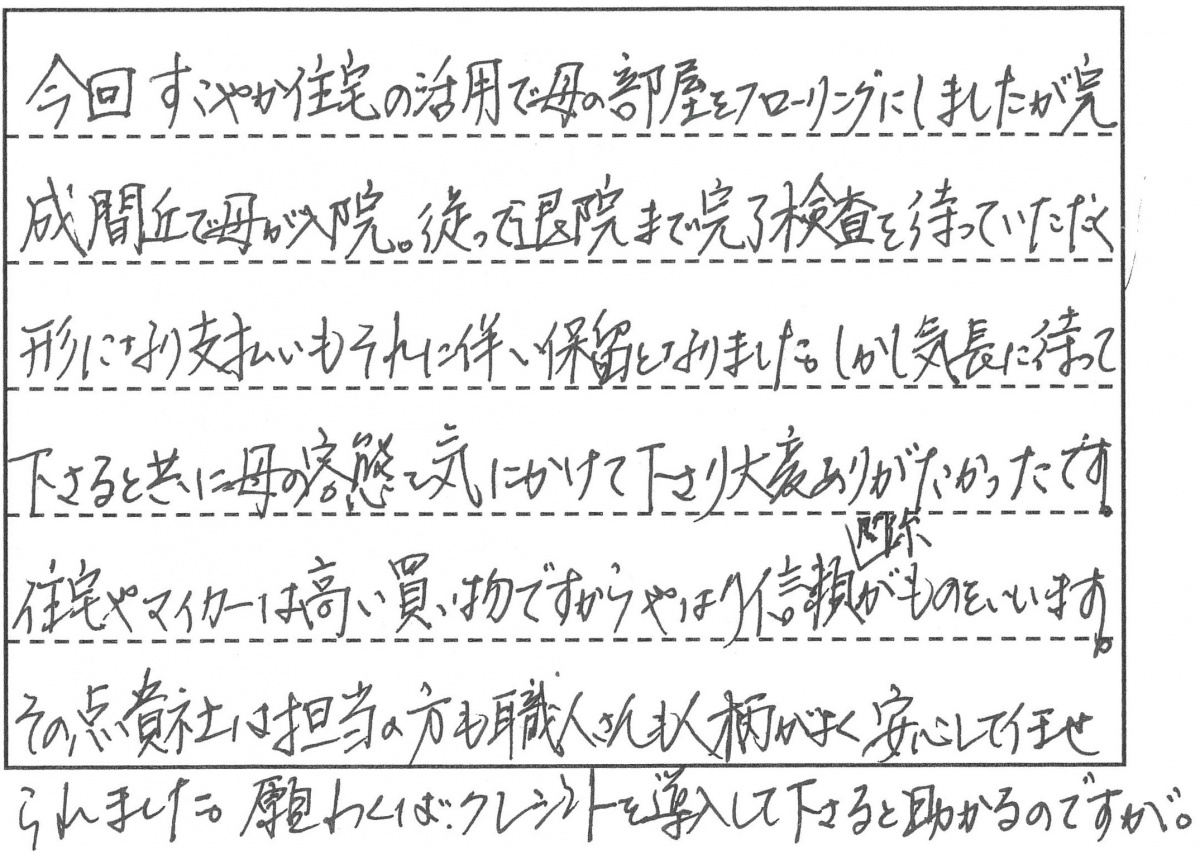 今回すこやか住宅の活用で母の部屋をフローリングにしましたが完
成間近で母が入院。従って退院まで完了検査を待っていただく
形になり支払いもそれに伴い保留となりました。しかし気長に待って
下さると共に母の容態を気にかけて下さり大変ありがたかったです。
住宅やマイカーは高い買い物ですからやはり信頼関係がものをいいます。
その点貴社は担当の方も職人さんも人柄がよく安心して任せ
られました。願わくばクレジットを導入して下さると助かるのですが。